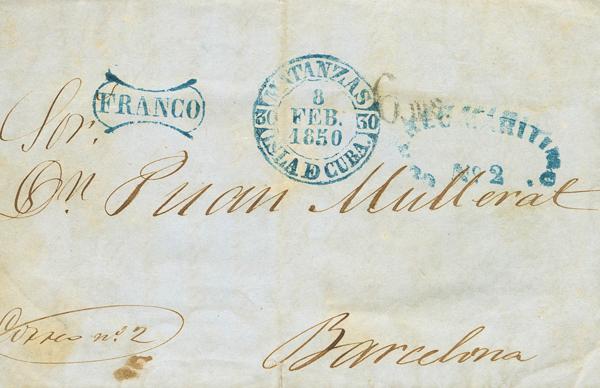 FRANCO
MATANZAS
8
FEB.
1850
30 30
ISLA D CUBA
6
MARITIMO
Nº 2
Sor.
Dn. Juan Mullerat
Correo nº 2
Barcelona